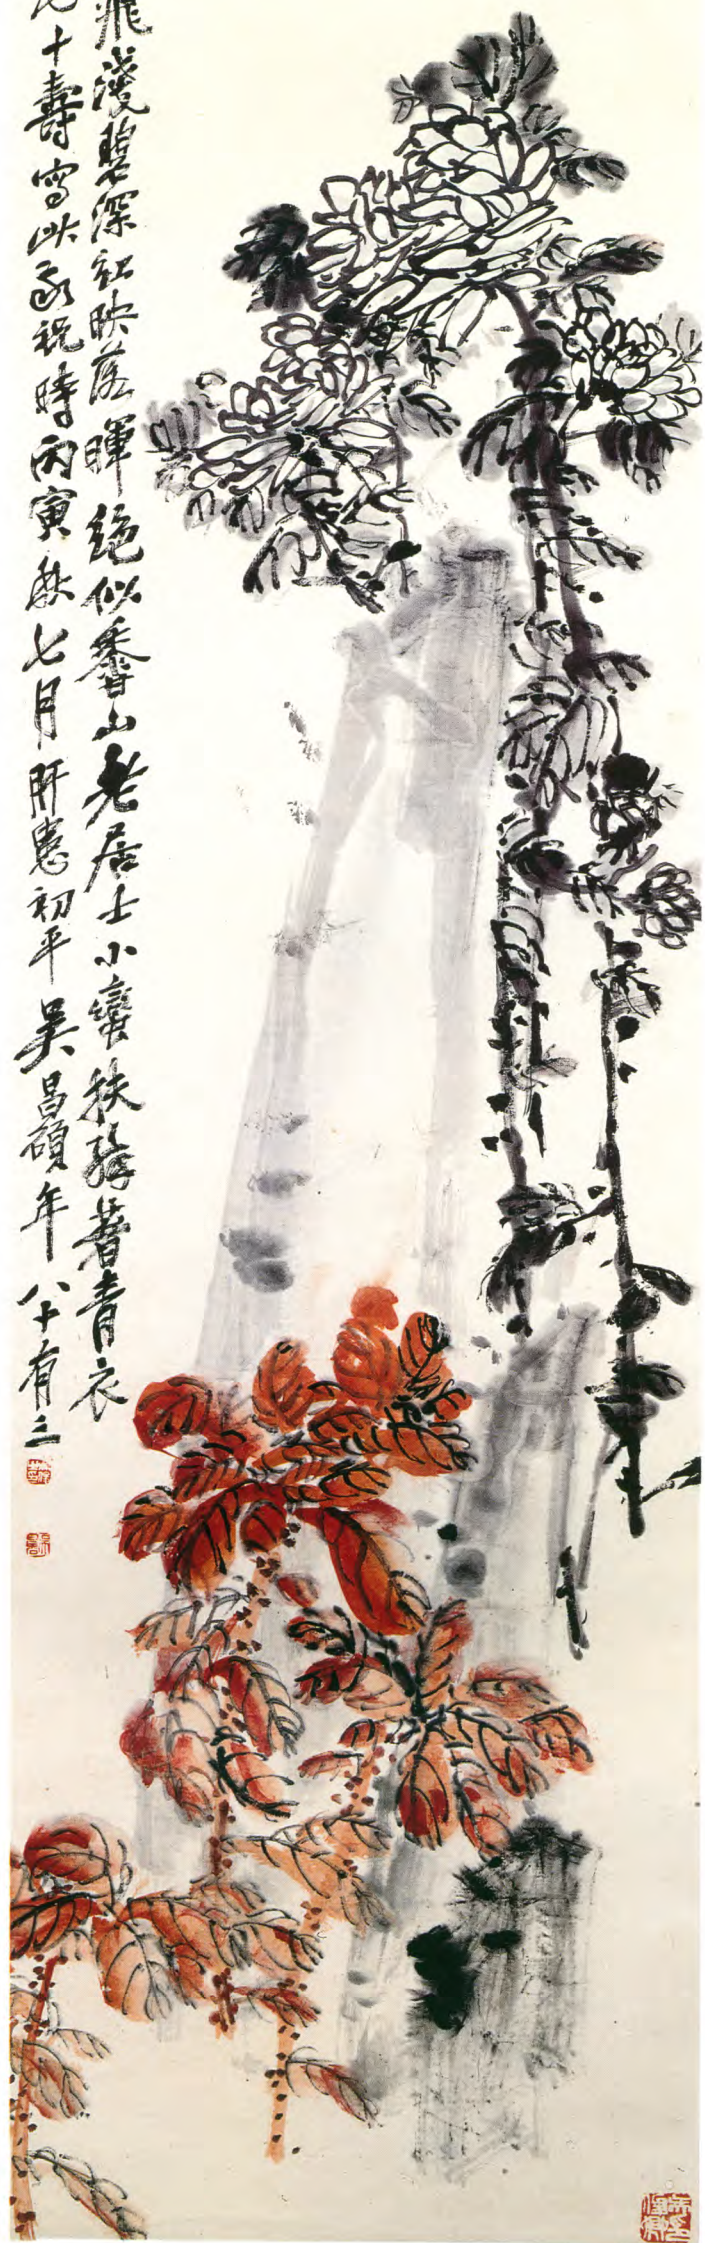 飛淺碧深紅映落暉絕似香山老居士小蠻扶醉著青衣
十壽寫此敬祝時丙寅秋七月肝患初平吳昌碩年八十有三